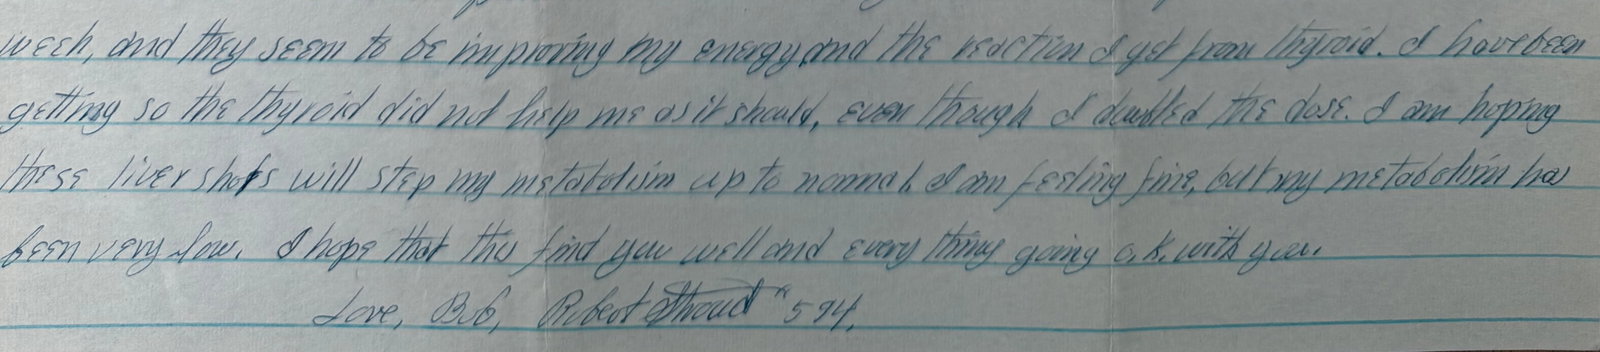 week, and they seem to be improving my energy and the reaction I get from thyroid. I have been
getting so the thyroid did not help me as it should, even though I doubled the dose. I am hoping
these liver shots will step my metabolism up to normal. I am feeling fine, but my metabolism has
been very low. I hope that this find you well and every thing going o.k. with you.
Love, Bob, Robert Stroud "594.